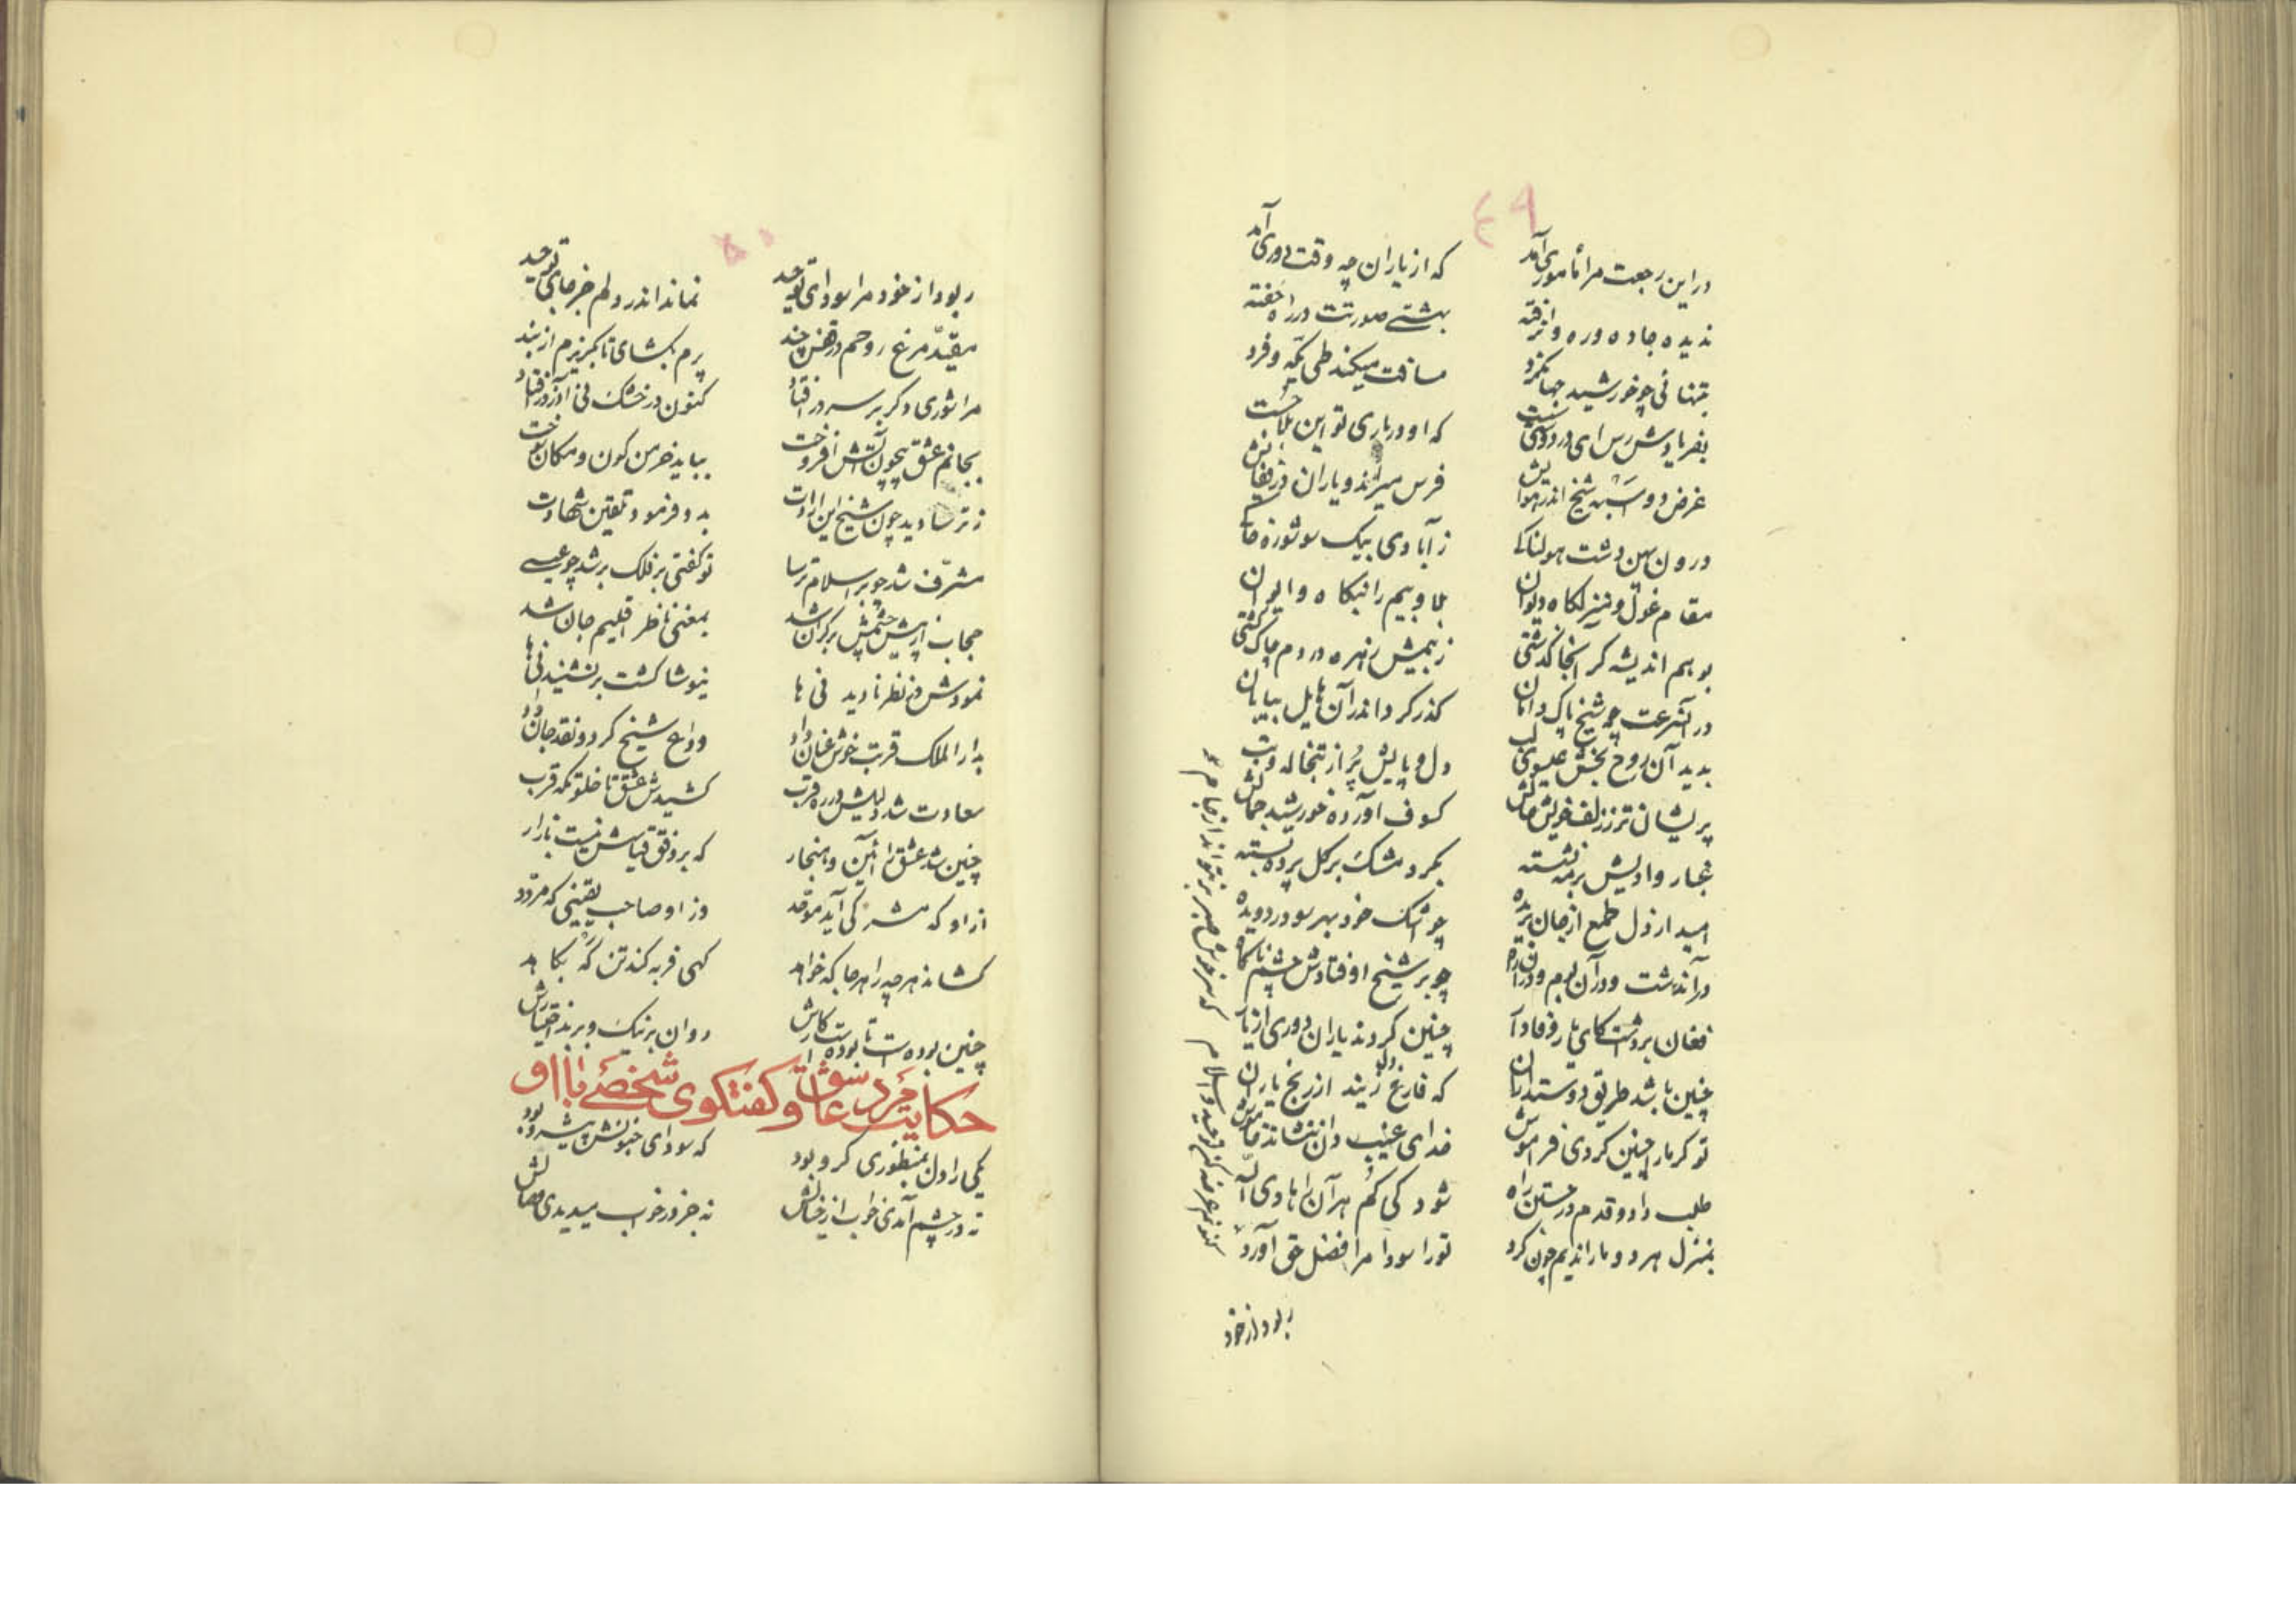 ٤٩
در این رجعت مرا مأموری آمد که از یاران چه وقت دوری آمد
ندیده جاده و ره واز رفته بهشتی صورتت در راه خفته
بتنهائی چو خورشید جهانگرد مسافت میکند طی یکه و فرد
بفریادش رس ای در دوستی که او در یاری تو این بلا جست
غرض دو اسبه شیخ اندر هوایش فرس میراند و یاران در قفایش
درون بهن دشت هولناکی ز آبادی بیک سو شوره خاکی
مقام غول و منزلگاه دیوان بلا و بیم را بنگاه و ایوان
بوهم اندیشه گر آنجا گذشتی ز بیمش زهره در دم چاک گشتی
در آنسرعت چه شیخ پاک دامان گذر کرد اندر آن هایل بیابان
بدید آن روح بخش عیسوی لب دل و پایش پر از تبخاله و تب
پریشان تر ز زلف خویش حالش کسوف آورده خورشید جمالش
غبار وادیش بر مه نشسته بگرد مشک بر گل پرده بسته
امید از دل طمع از جان بریده چو اشک خود بهر سو در دویده
در آندشت و در آن بوم و در آن راه چو بر شیخ اوفتادش چشم ناگاه
فغان برداشت کای یار وفادار چنین کردند یاران دوری از یار
چنین باشد طریق دوستداران که فارغ دل زیند از رنج یاران
تو گر ما را چنین کردی فراموش خدای غیب دان ننشاند خاموش
طلب داد و قدم در جستن راه شود کی گم هر آن را هادی الله
بمنزل هر دو ما راندیم چون گرد تو را سودا مرا فضل حق آورد
ربود از خود
٥٠
ربود از خود مرا سودای توحید نماند اندر دلم جز جای توحید
مقید مرغ روحم در قفس چند پرم بگشای تا بگریزم از بند
مرا شوری دگر بر سر در افتاد کنون در خشک نی آذر در افتاد
بجانم عشق همچون آتش افروخت بباید خرمن کون و مکان سوخت
ز ترسا دید چون شیخ این ارادت بدو فرمود تلقین شهادت
مشرف شد چو بر اسلام ترسا تو گفتی بر فلک بر شد چو عیسی
حجاب از پیش چشمش بر کران شد بمعنی ناظر اقلیم جان شد
نمودش در نظر نادیدنی ها نیوشا گشت بر نشنیدنی ها
بدار الملک قربت خوش عنان داد وداع شیخ کرد و نقد جان داد
سعادت شد دلیلش در ره قرب کشیدش عشق تا خلوتگه قرب
چنین شد عشق را آئین و هنجار که بر وفق قیاسش نیست بازار
از او که مشرکی آید موحد وز او صاحب یقینی که مردد
کشاند هر چه را هر جا که خواهد گهی فربه کند تن گه بکاهد
چنین بوده است تا بوده است کارش روان بر نیک و بد اختیارش
حکایت مرد سوقی عاشق و گفتگوی شخصی با او
یکی را دل بمنظوری گرو بود که سودای جنونش پیشرو بود
نه در چشم آمدی خواب از خیالش نه جز در خواب میدیدی وصالش